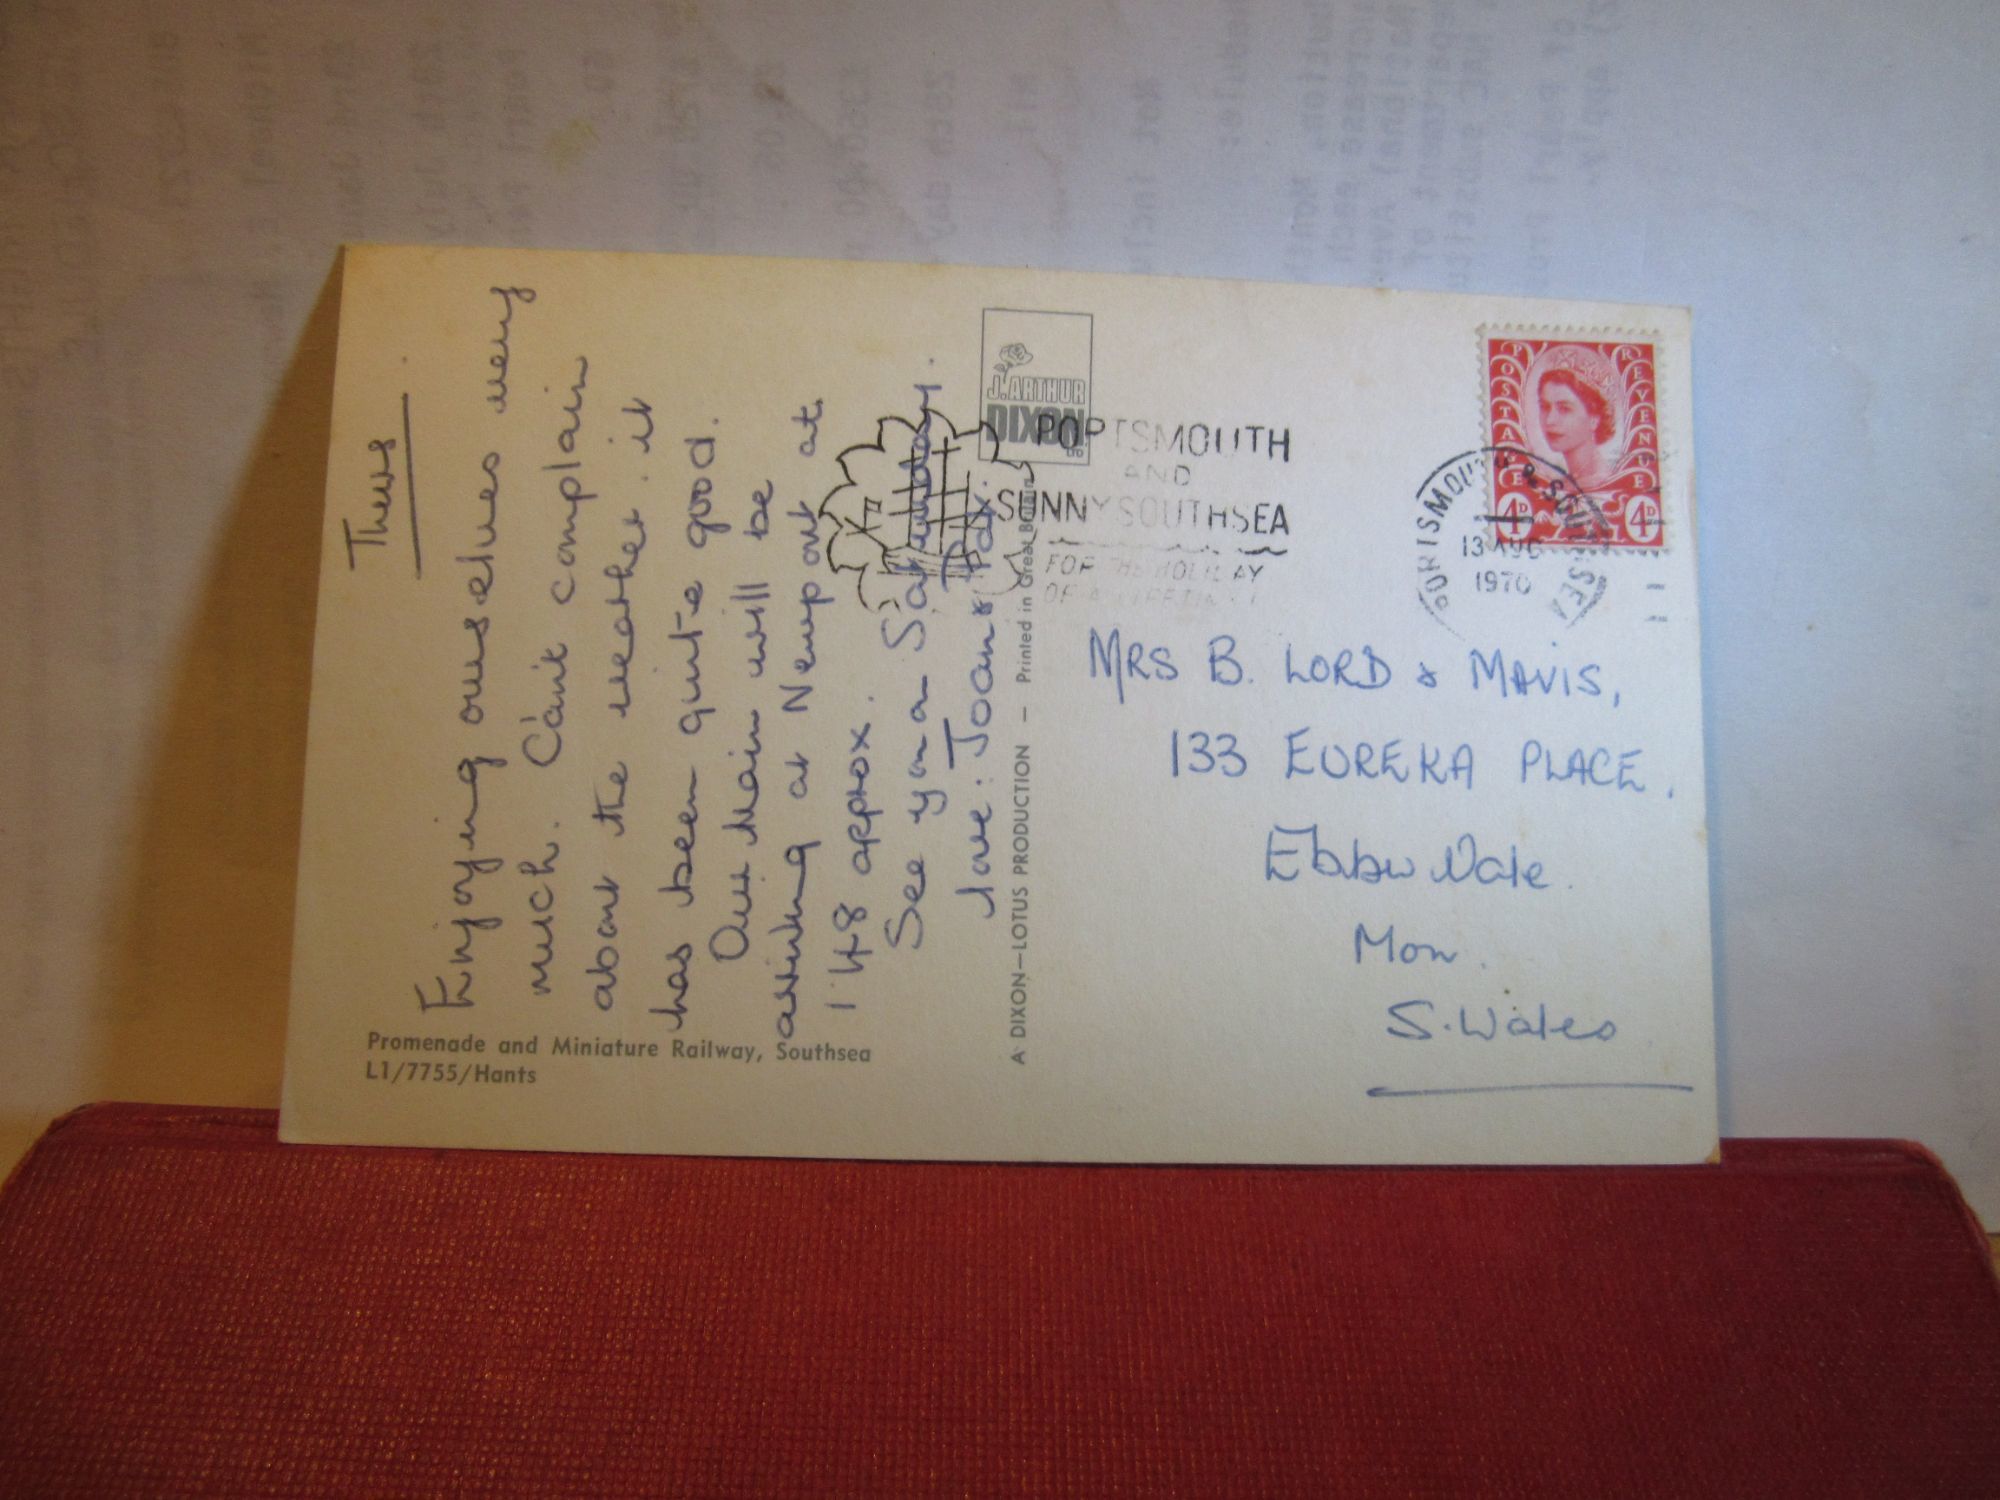 Thurs.
Enjoying ourselves very
much. Can't complain
about the weather. it
has been quite good.
Our train will be
arriving at Newport at
1 48 approx.
See you on Saturday.
love: Joan & 
Promenade and Miniature Railway, Southsea
L1/7755/Hants
A DIXON—LOTUS PRODUCTION — Printed in Great Britain
J. ARTHUR
DIXON
LTD
PORTSMOUTH
AND
SUNNY SOUTHSEA
FOR THE HOLIDAY
OF A
POSTAGE REVENUE
4D 4D
PORTSMOUTH & SOUTHSEA
13 AUG
1970
MRS B. LORD & MAVIS,
133 EUREKA PLACE.
Ebbw Vale.
Mon.
S. Wales